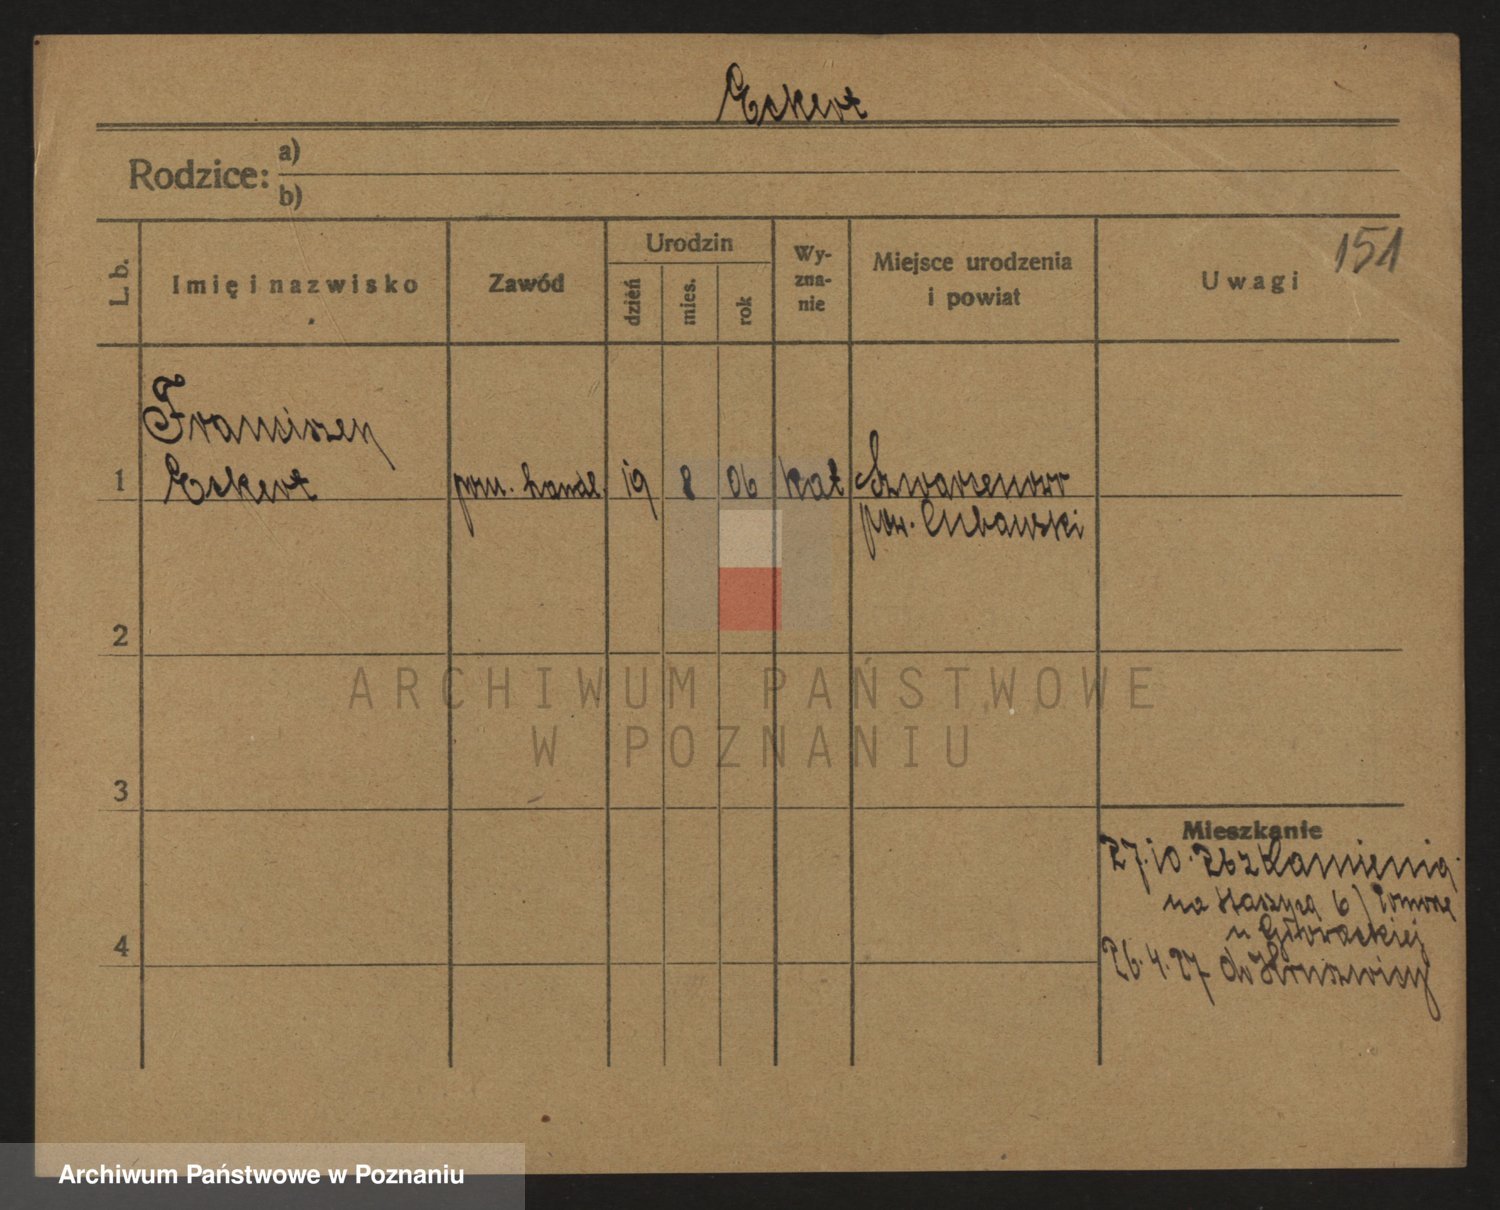 Eckert
Rodzice: a)
b)
L. b.
Imię i nazwisko
Zawód
Urodzin
dzień
mies.
rok
Wy-
zna-
nie
Miejsce urodzenia
i powiat
Uwagi
151
Franciszek
1 Eckert pom. handl. 19 8 06 kat Szwarcenowo
pow. Lubawski
2
3
4
Mieszkanie
27.10.26 z Kamienia
na 6/ Pomorze
u
26.4.27 do Kruszwicy
ARCHIWUM PAŃSTWOWE
W POZNANIU
Archiwum Państwowe w Poznaniu